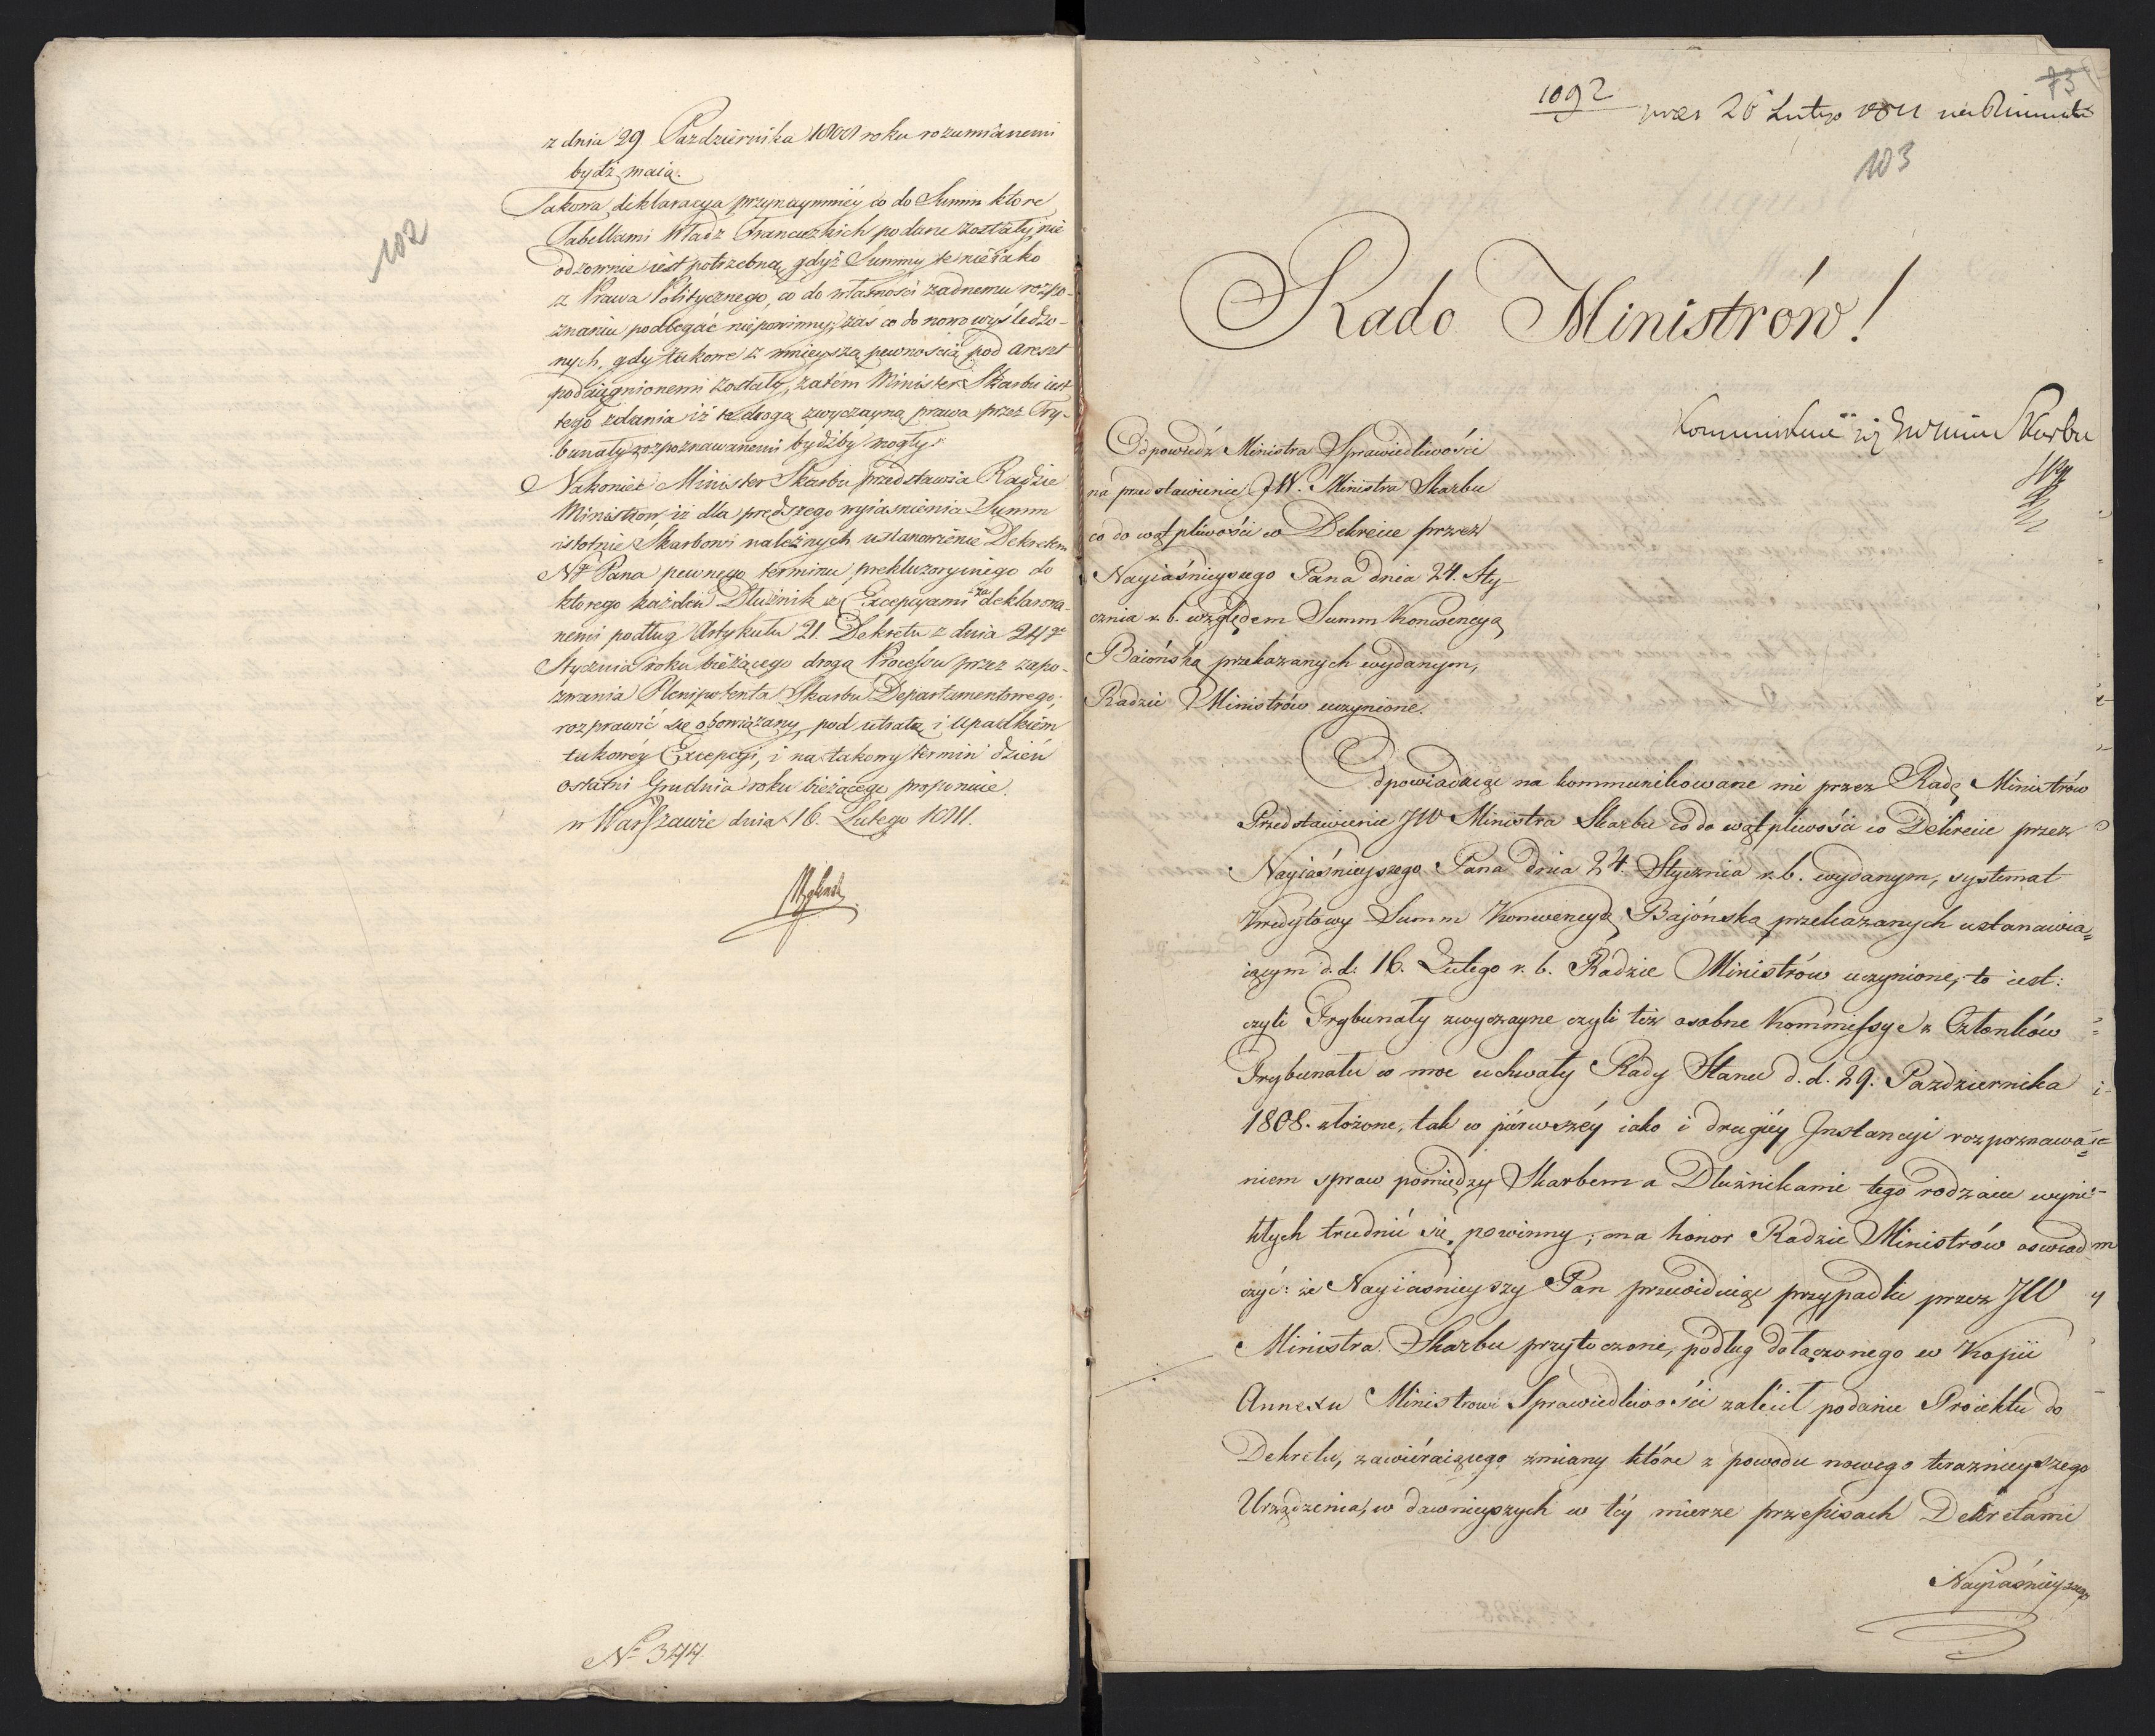 z dnia 29 Pazdziernika 1808 roku rozumianemi
bydź maią.
Takowa deklaracya przynaymniéy co do Summ które
Tabellami Władz Francuzkich podane zostały, nie
odzownie iest potrzebną, gdyż Summy te nieiako
z Prawa Politycznego, co do własności żadnemu rozpo-
znaniu podlegać niepowinny, zas co do nowo wyśledzo-
nych, gdy takowe z mnieyszą pewnością pod Areszt
podciągnionemi zostały, zatém Minister Skarbu iest
tego zdania iż te drogą zwyczayną prawa przez Try-
bunały rozpoznawanemi bydźby mogły.
Nakoniec Minister Skarbu przedstawia Radzie
Ministrow, iż dla prędszego wyiasnienia Summ
istotnie Skarbowi należnych ustanowienie Dekretem
Nº Pana pewnego terminu prekluzoryinego do
ktorego każdén Dłużnik z Excepcyami za deklarowa-
nemi podług Artykułu 21. Dekretu z dnia 24º
Stycznia roku bieżącego drogą Processu przez zapo-
zwania Plenipotenta Skarbu Departamentowego,
rozprawić się obowiązany, pod utratą i upadkiem
takowéy Excepcyi, i na takowy termin dzień
ostatni Grudnia roku bieżącego proponuie.
w Warszawie dnia 16. Lutego 1811.
102
Nº 344.
1092
73
prez 26 Lutego 1811
103
Rado Ministrów!
Skarbu
Odpowiedź Ministra Sprawiedliwości
na przedstawienie JW. Ministra Skarbu
co do wątpliwości w Dekrecie przez
Nayiaśnieyszego Pana dnia 24. Sty-
cznia r. b. względem Summ Konwencyą
Baiońską przekazanych wydanym,
Radzie Ministrów uczynione.
Odpowiadaiąc na kommunikowane mi przez Radę Ministrów
Przedstawienie JW Ministra Skarbu co do wątpliwości w Dekrecie przez
Nayiaśnieyszego Pana dnia 24. Stycznia r. b. wydanym, systemat
kredytowy Summ Konwencyą Bajońską przekazanych ustanawia=
iącym d. d. 16. Lutego r. b. Radzie Ministrów uczynione, to iest:
czyli Trybunały zwyczayne czyli też osobne Kommissye z Członków
Trybunału w moc uchwały Rady Stanu d. d. 29. Pazdziernika
1808. złożone, tak w piérwszéy iako i drugiéy Instancyi rozpoznawa=
niem spraw pomiędzy Skarbem a Dłużnikami tego rodzaiu wyni-
kłych trudnić się powinny; ma honor Radzie Ministrów oswiad
czyć: że Nayiaśnieyszy Pan przewiduiąc przypadki przez JW
Ministra Skarbu przytoczone, podług dołączonego w Kopii
Annexu Ministrowi Sprawiedliwości zalécił podanie Projektu do
Dekretu, zawiéraiącego zmiany które z powodu nowego teraznieyszego
Urządzenia, w dawnieyszych w téy mierze przepisach Dekretami
Nayiaśnieyszego